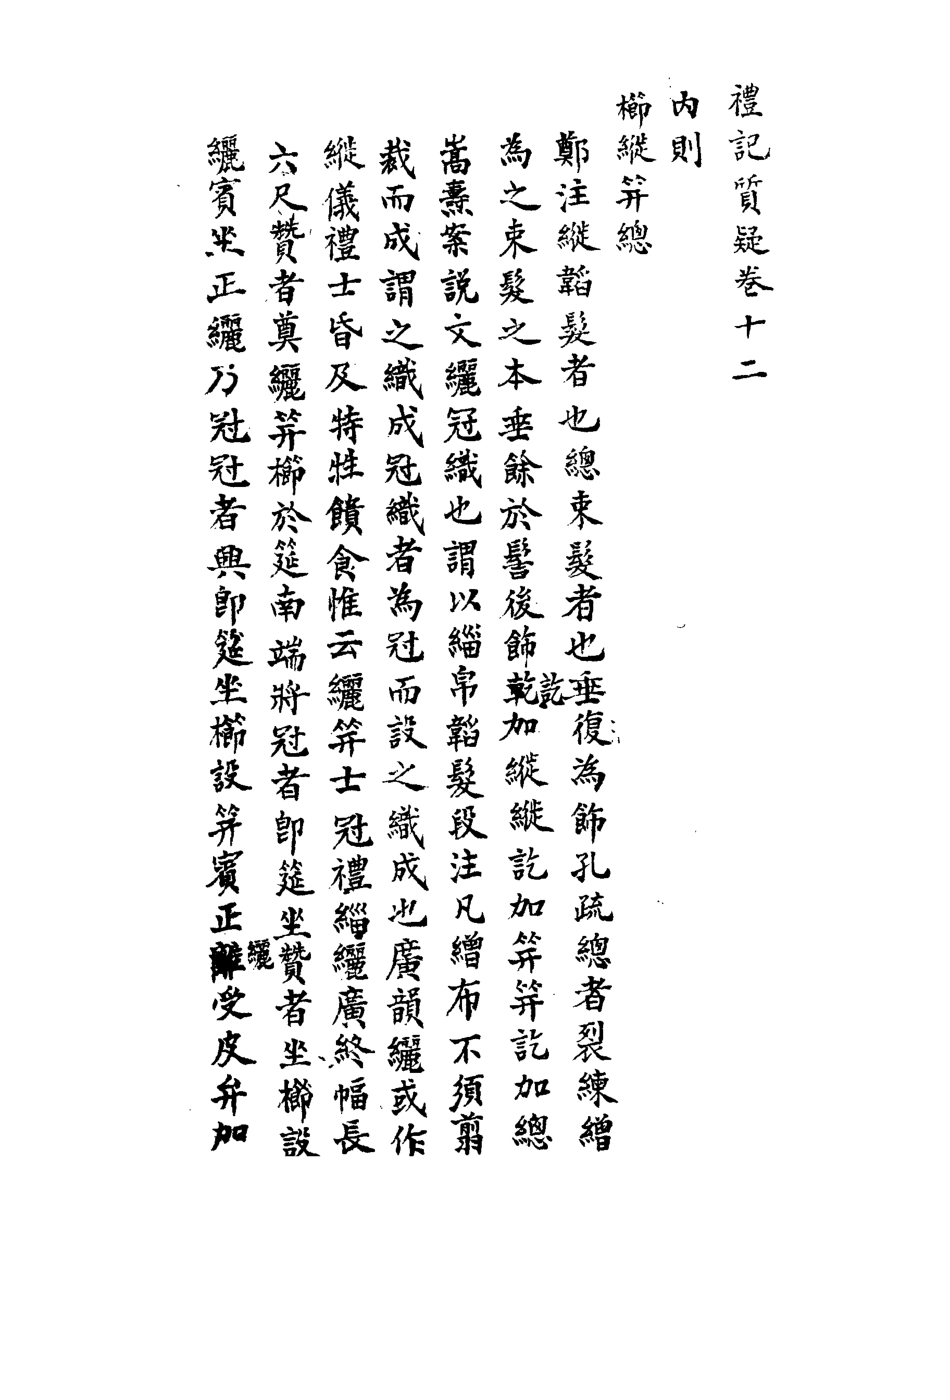 禮記質疑卷十二
內則
櫛縰笄總
鄭注縰韜髮者也總束髮者也垂復為飾孔疏總者裂練繒
為之束髮之本垂餘於髻後飾訖加縰縰訖加笄笄訖加總
嵩燾案説文纚冠織也謂以緇帛韜髮段注凡繒布不須剪
裁而成謂之織成冠織者為冠而設之織成也廣韻纚或作
縰儀禮士昏及特牲饋食惟云纚笄士冠禮緇纚廣終幅長
六尺贊者奠纚笄櫛於筵南端將冠者即筵坐贊者坐櫛設
纚賓坐正纚乃冠冠者興即筵坐櫛設笄賓正纚受皮弁加